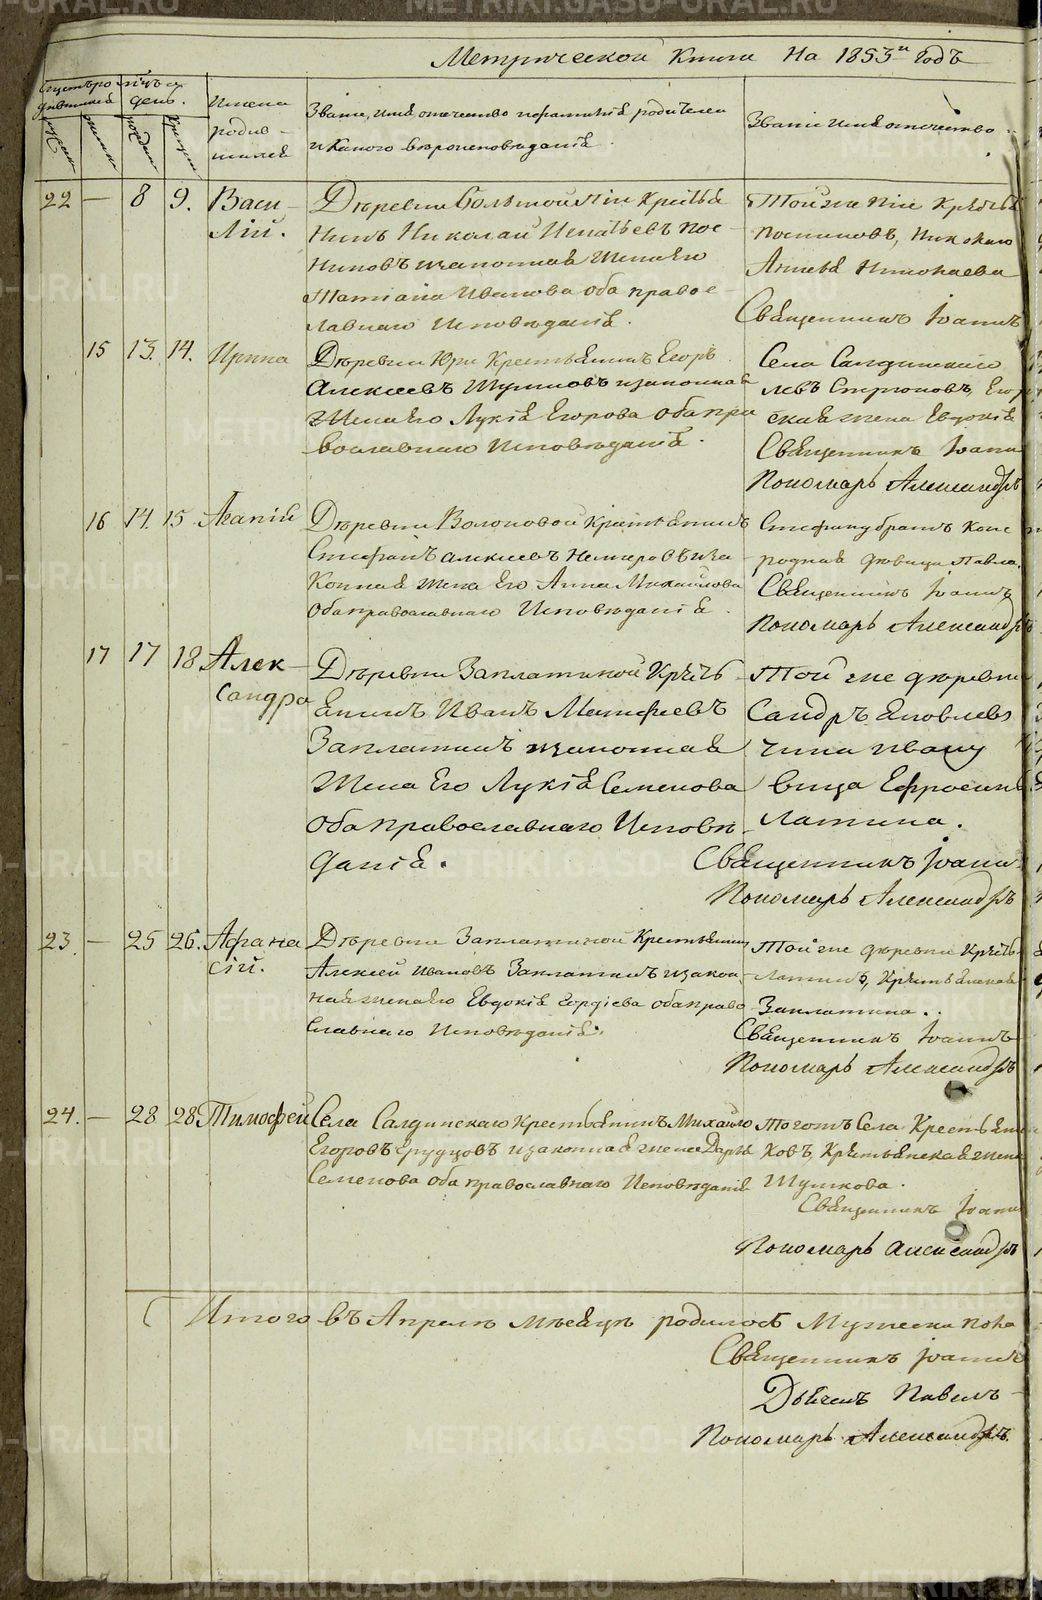 Метрической Книги На 1853й Годъ
Счетъ родившихся
Мѣсяцъ и день.
Имена родившихся
Званіе, имя, отчество и фамилія родителей
и какого вѣроисповѣданія.
Званіе имя отчество
22 — 8 9. Васи-
лій.
Деревни Большой Лїи Крестья
нинъ Николай Игнатьевъ Пос-
никовъ изаконная жена Его
Татіана Иванова оба правос-
лавнаго Исповѣданія.
Той же Лїи Крестья
Посниковъ, Николаю
Агнія Николаева
Священникъ Іоаннъ
15 13. 14. Ирина
Деревни Юри Крестьянинъ Егоръ
Алексеевъ Шумковъ изаконная
Жена Его Лукія Егорова оба пра
вославнаго Исповѣданія.
Села Салдинскаго
левъ Стрюковъ, Егор
ская жена Евдокія
Священникъ Іоанн
Пономарь Александръ
16 14. 15. Агапія
Деревни Волоковой Крестьянинъ
Стефанъ Алексеевъ иза
конная жена Его Анна Михайлова
Оба православнаго Исповѣданія.
Стефану братъ
родная дѣвица Павла
Священникъ Іоаннъ
Пономарь Александръ
17 17 18 Алек-
сандра
Деревни Заплатиной Кресть
янинъ Иванъ Матфеевъ
Заплатинъ изаконная
Жена Его Лукія Семенова
Оба Православнаго Исповѣ
данія.
Той же деревни
Сандръ Яковлевъ
чина Ивану
вица Ефросинь
латина.
Священникъ Іоанн
Пономарь Александръ
23. — 25 26. Афана
сій.
Деревни Заплатиной Крестьянинъ
Алексей Ивановъ Заплатинъ изакон
ная жена Его Евдокія Гордіева оба право
славнаго Исповѣданія.
Той же деревни Кресть
латинъ, Крестьянская
Заплатина..
Священникъ Іоаннъ
Пономарь Александръ
24. — 28 28 Тимофей
Села Салдинскаго Крестьянинъ Михайло
Егоровъ изаконная жена Дарья
Семенова оба православнаго Исповѣданія
Тогожъ Села Крестьян
ковъ, Крестьянская жена
Шумкова.
Священникъ Іоанн
Пономарь Александръ
Итого въ Апрелѣ мѣсяцѣ родилось Мужеска пола
Священникъ Іоаннъ
Дьячекъ Павелъ
Пономарь Александръ.
METRIKI.GASO-URAL.RU